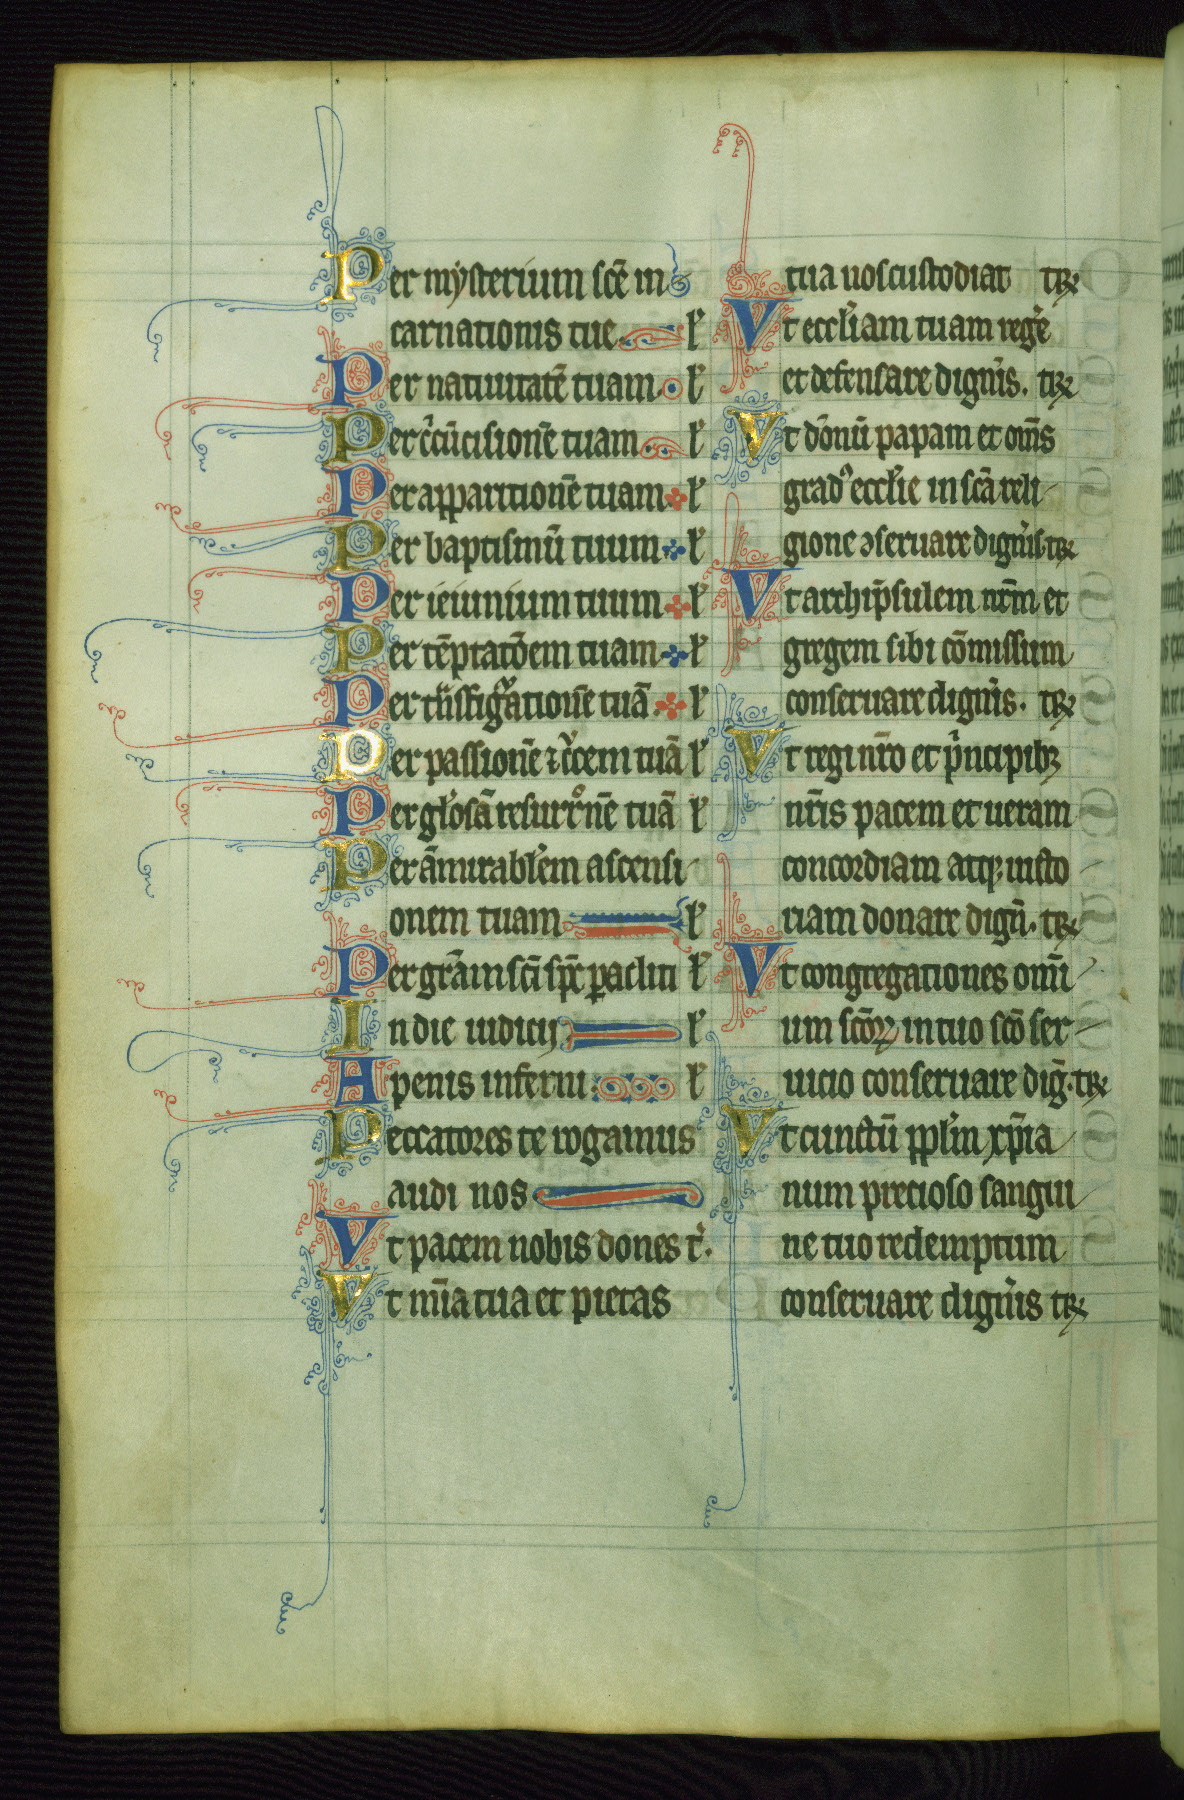 Per mysterium scē in
carnationis tue l'
Per natiuitatē tuam l'
Per c̄cūcisionē tuam l'
Per apparitionē tuam l'
Per baptismū tuum l'
Per ieiunium tuum l'
Per tēptatōem tuam l'
Per t̄nsfigᵃationē tuā l'
Per passionē ⁊ cͬcem tuā l'
Per gl'osā resurr̄nē tuā l'
Per āmirabl'em ascensi
onem tuam l'
Per gr̄am sc̄i sp̄c paͣcliti l'
In die iudicij l'
A penis inferni l'
Peccatores te rogamus
audi nos
Vt pacem nobis dones t'.
Vt mīa tua et pietas
tua nos custodiat tꝝ
Vt eccl'iam tuam reg'e
et defensare dignͥs. tꝝ
Vt dōnū papam et om̄s
gradꝰ eccl'ie in scā reli
gione ꝯseruare dignͥs tꝝ
Vt archip̄sulem nr̄m et
gregem sibi cōmissum
conseruare dignͥs. tꝝ
Vt regi nr̄o et pͥncipibꝫ
nr̄is pacem et ueram
concordiam atqꝫ uicto
riam donare dign̄. tꝝ
Vt congregationes omī
um scōꝝ in tuo scō ser
uicio conseruare diḡ. tꝝ
Vt cunctū ppl'm xp̄ia
num precioso sangui
ne tuo redemptum
conseruare dignͥs tꝝ